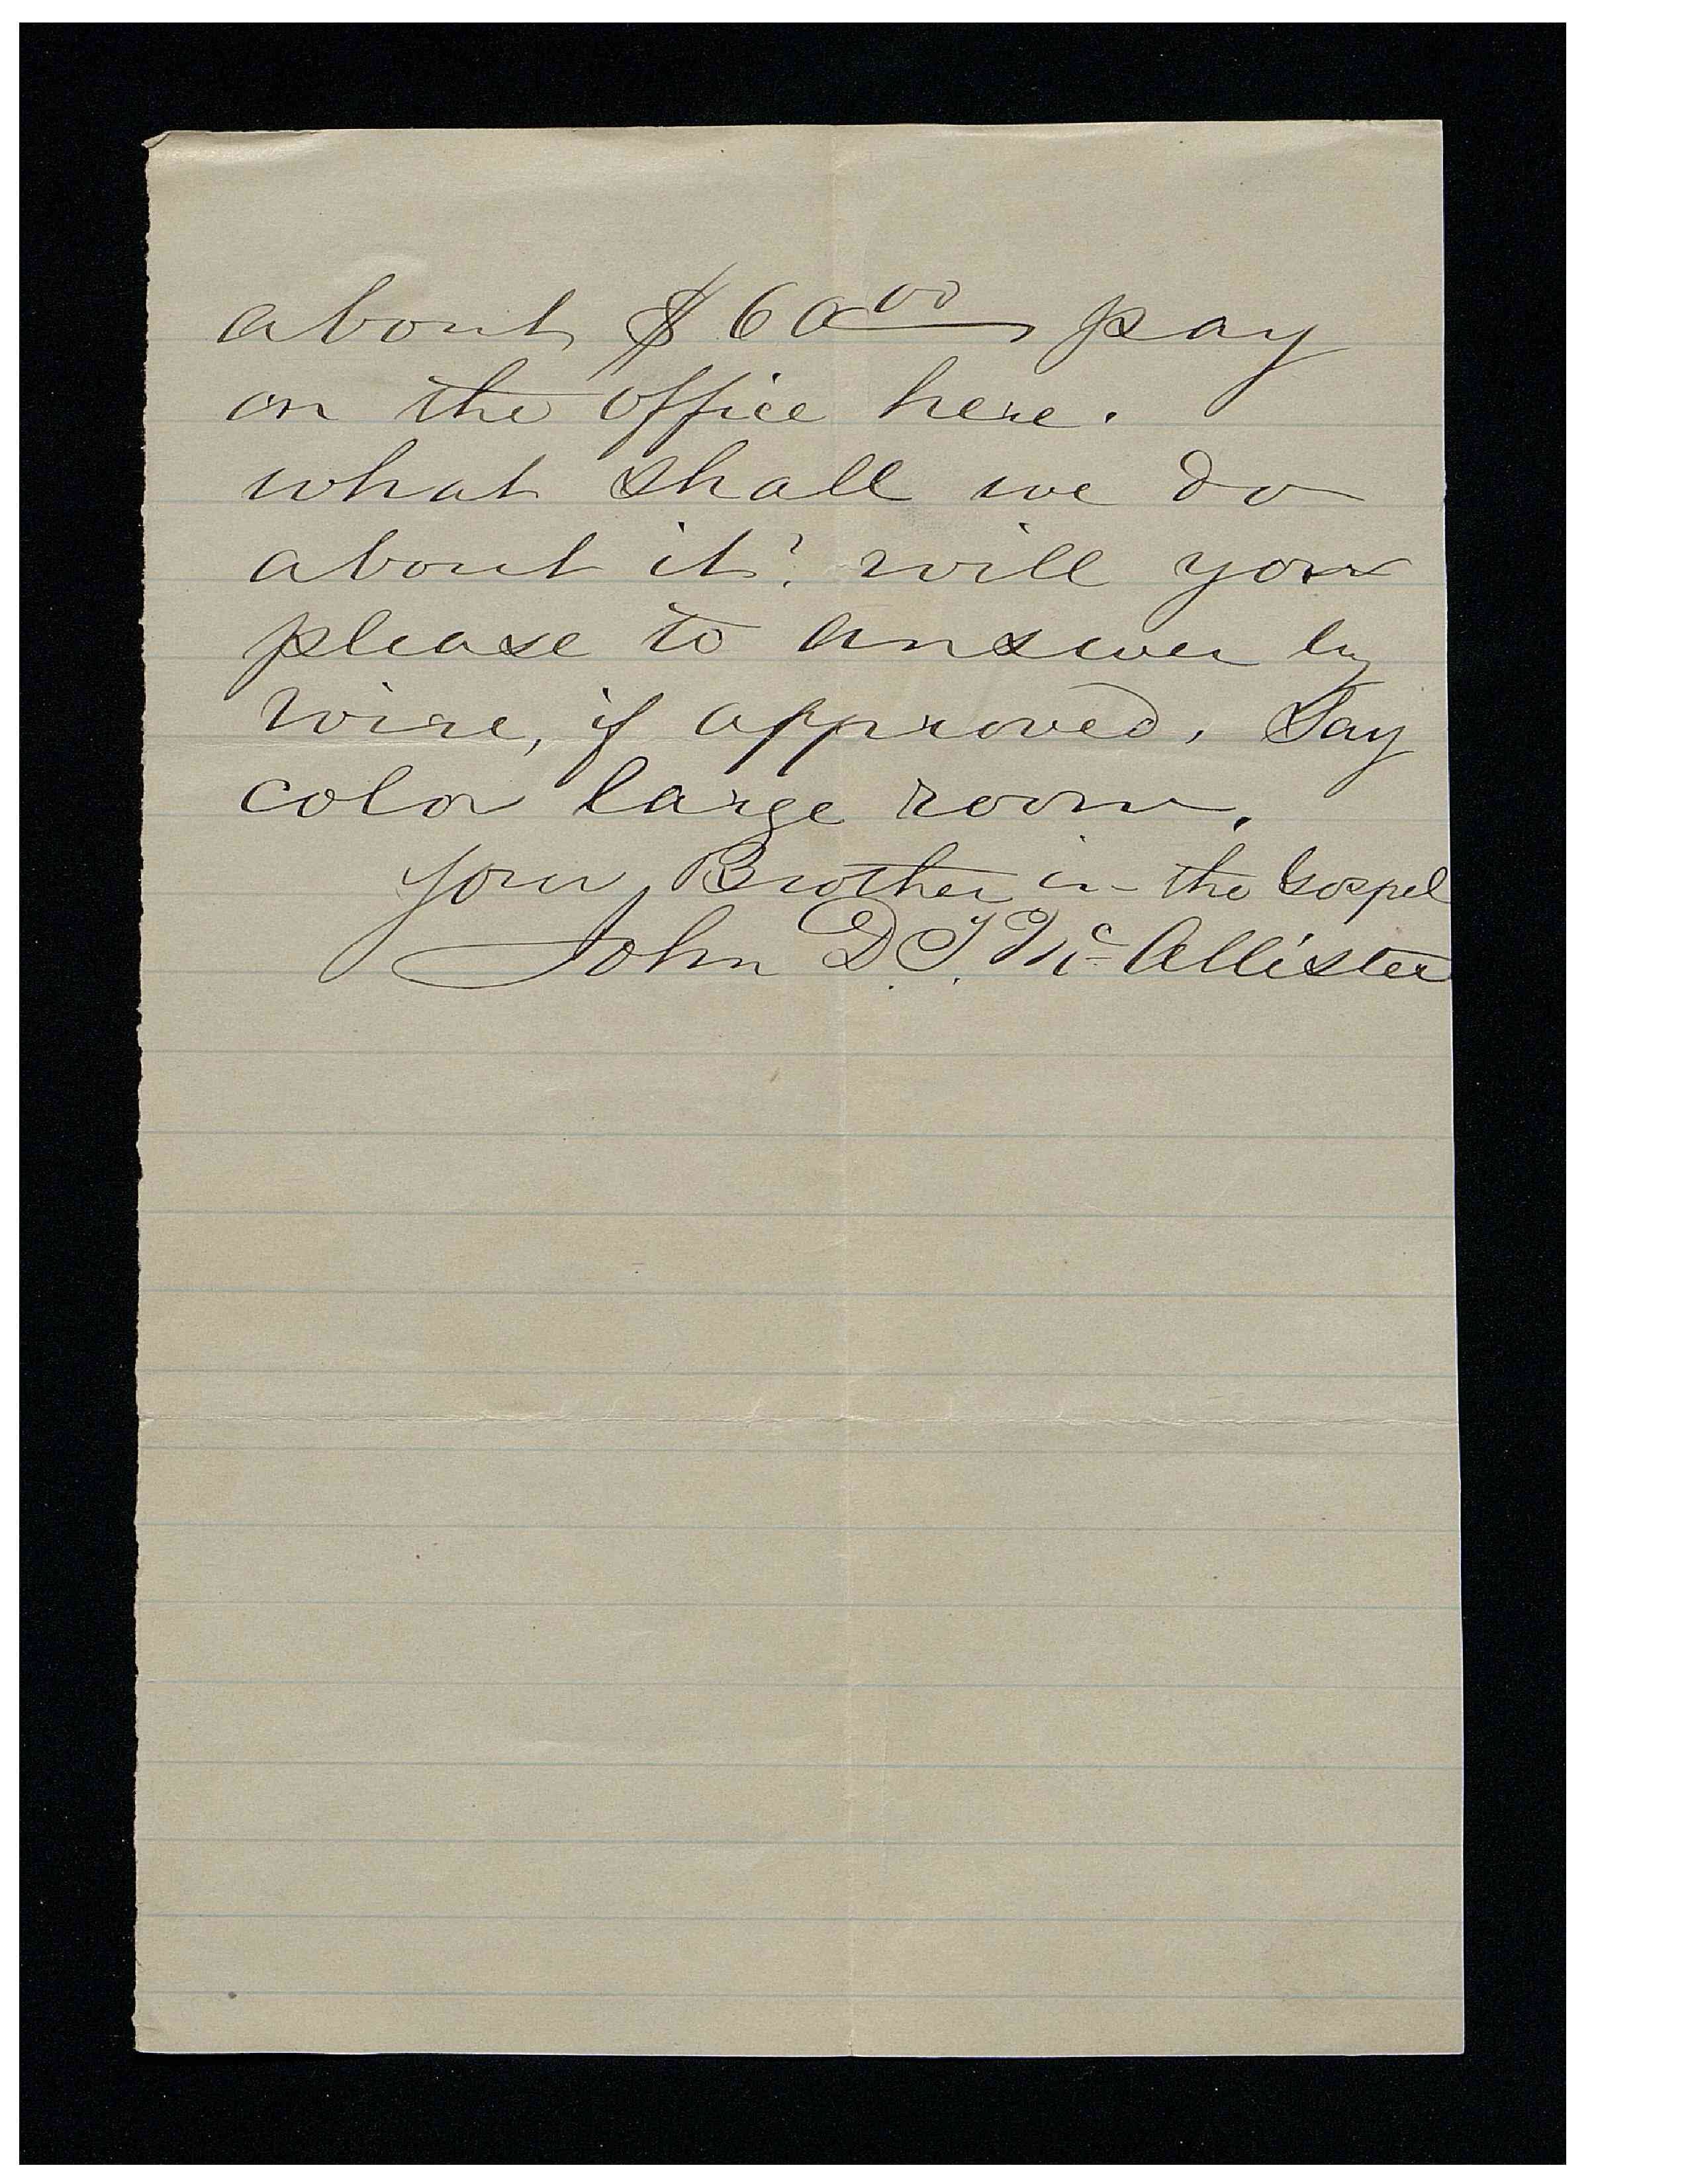 about $60.00 pay
on the office here.
what shall we do
about it? will you
please to answer by
wire, if approved. Say
color large room.
your Brother in the Gospel
John D. T. McAllister